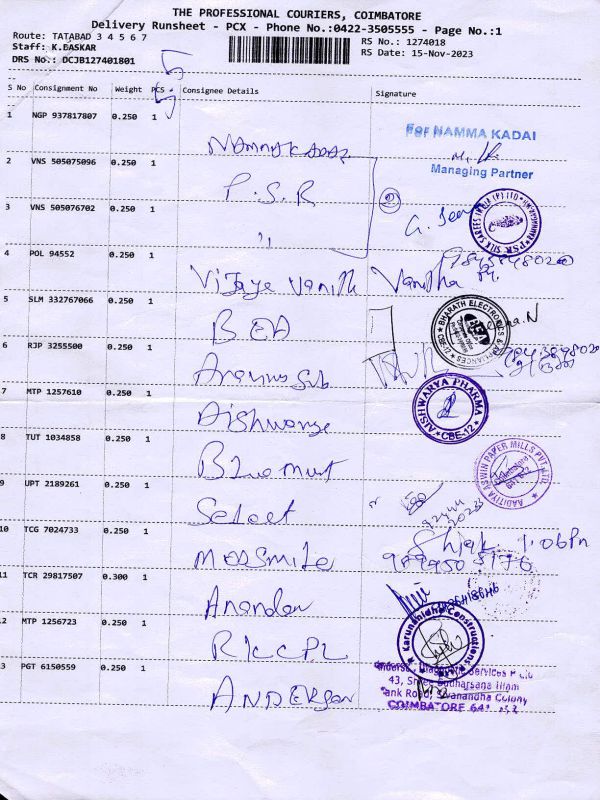 THE PROFESSIONAL COURIERS, COIMBATORE
Delivery Runsheet - PCX - Phone No.:0422-3505555 - Page No.:1
Route: TATABAD 3 4 5 6 7
RS No.: 1274018
Staff: K.BASKAR
RS Date: 15-Nov-2023
DRS No.: DCJB127401801
S No Consignment No Weight PCS Consignee Details Signature
1 NGP 937817807 0.250 1 NAMMAKADAI
For NAMMA KADAI
Managing Partner
2 VNS 505075096 0.250 1 P.S.R
2
PSR SILK SAREES INDIA (P) LTD
3 VNS 505076702 0.250 1 "
4 POL 94552 0.250 1 Vijaye Vanith Vanitha
5 SLM 332767066 0.250 1 BEA
BHARATH ELECTRONICS & APPLIANCES
6 RJP 3255500 0.250 1
7 MTP 1257610 0.250 1 Aishwarya
AISHWARYA PHARMA
CBE-12
8 TUT 1034858 0.250 1
AADITIYA ASWIN PAPER MILLS PVT. LTD
9 UPT 2189261 0.250 1 Select
10 TCG 7024733 0.250 1 1.06Pm
11 TCR 29817507 0.300 1 Anandan
12 MTP 1256723 0.250 1 RKCCPL
Karunanidhi Constructions
13 PGT 6150559 0.250 1 ANDERSON
Anderson Diagnostic Services P Ltd
43, Sree Sudharsana Illam
Bank Road, Sivanandha Colony
COIMBATORE 641 012